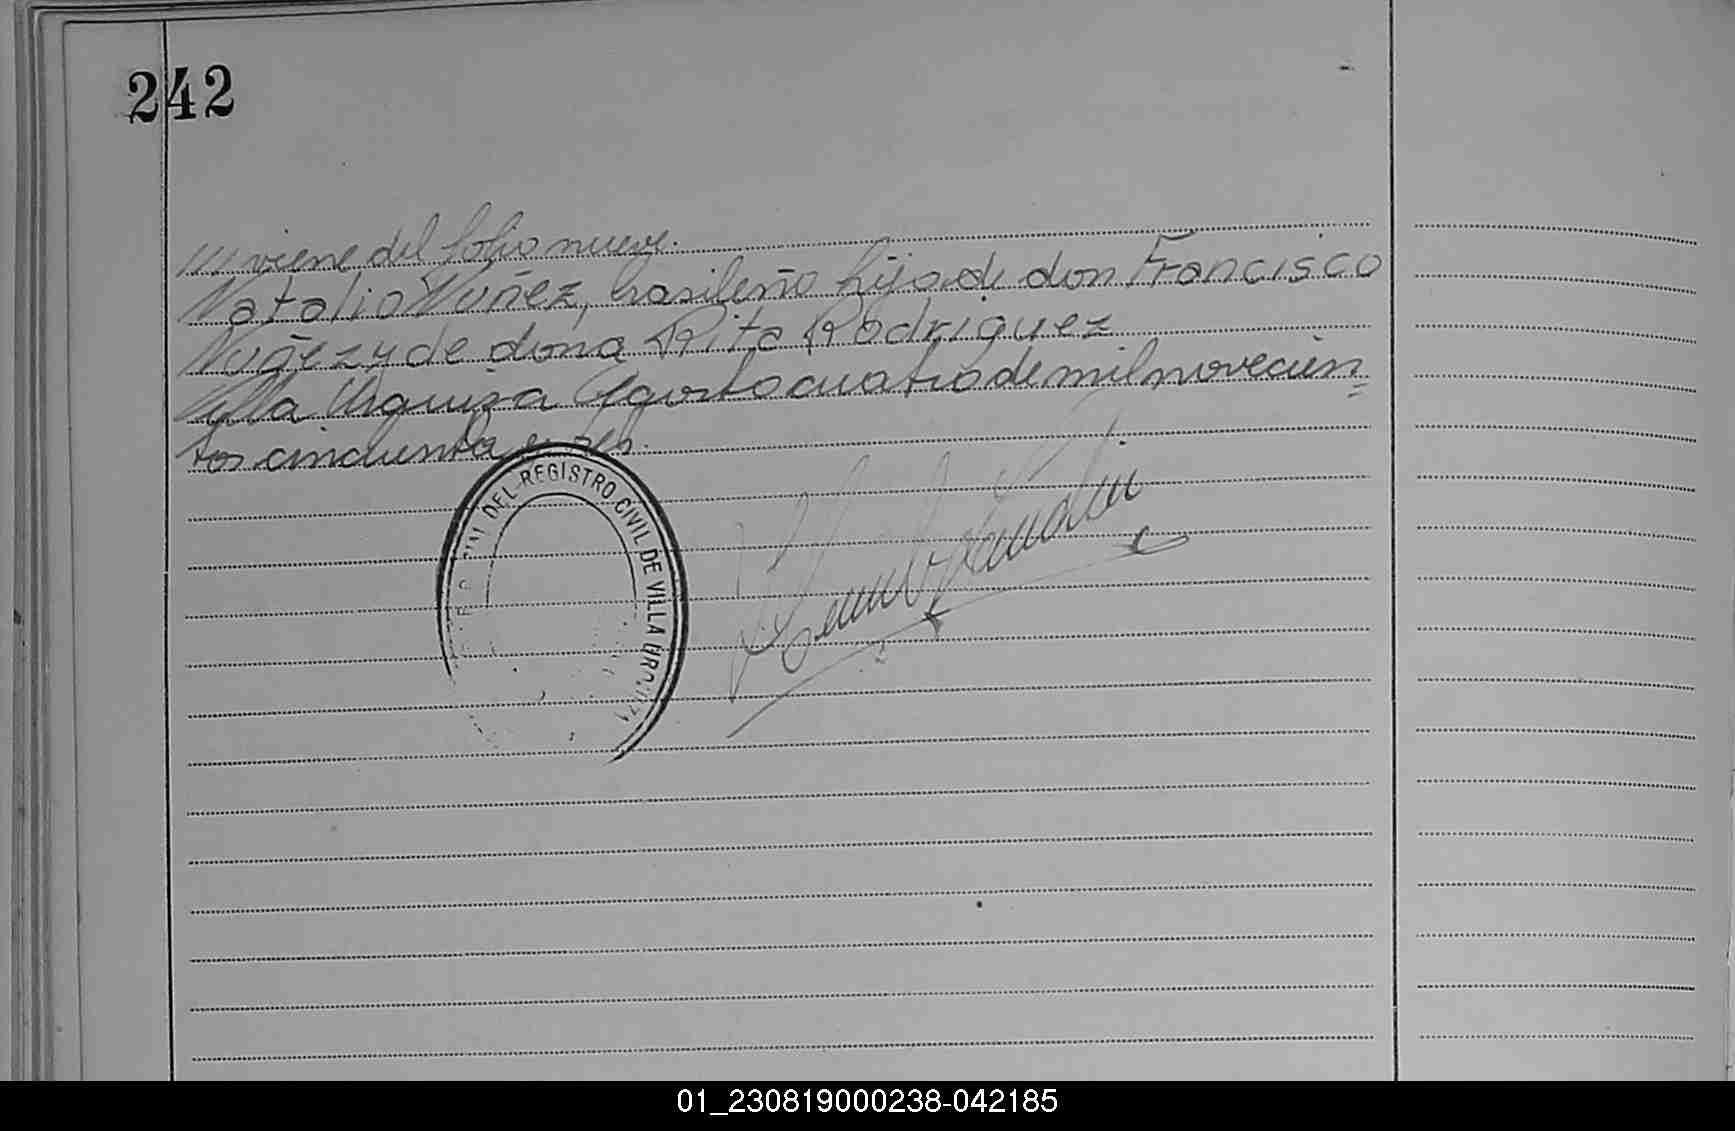 242
/// viene del folio nueve.
Natalio Nuñez, brasileño hijo de don Francisco
Nuñez y de dona Rita Rodriguez
Villa Urquiza Agosto cuatro de mil novecien=
tos cincuenta y
DEL REGISTRO CIVIL DE VILLA URQUIZA
01_230819000238-042185